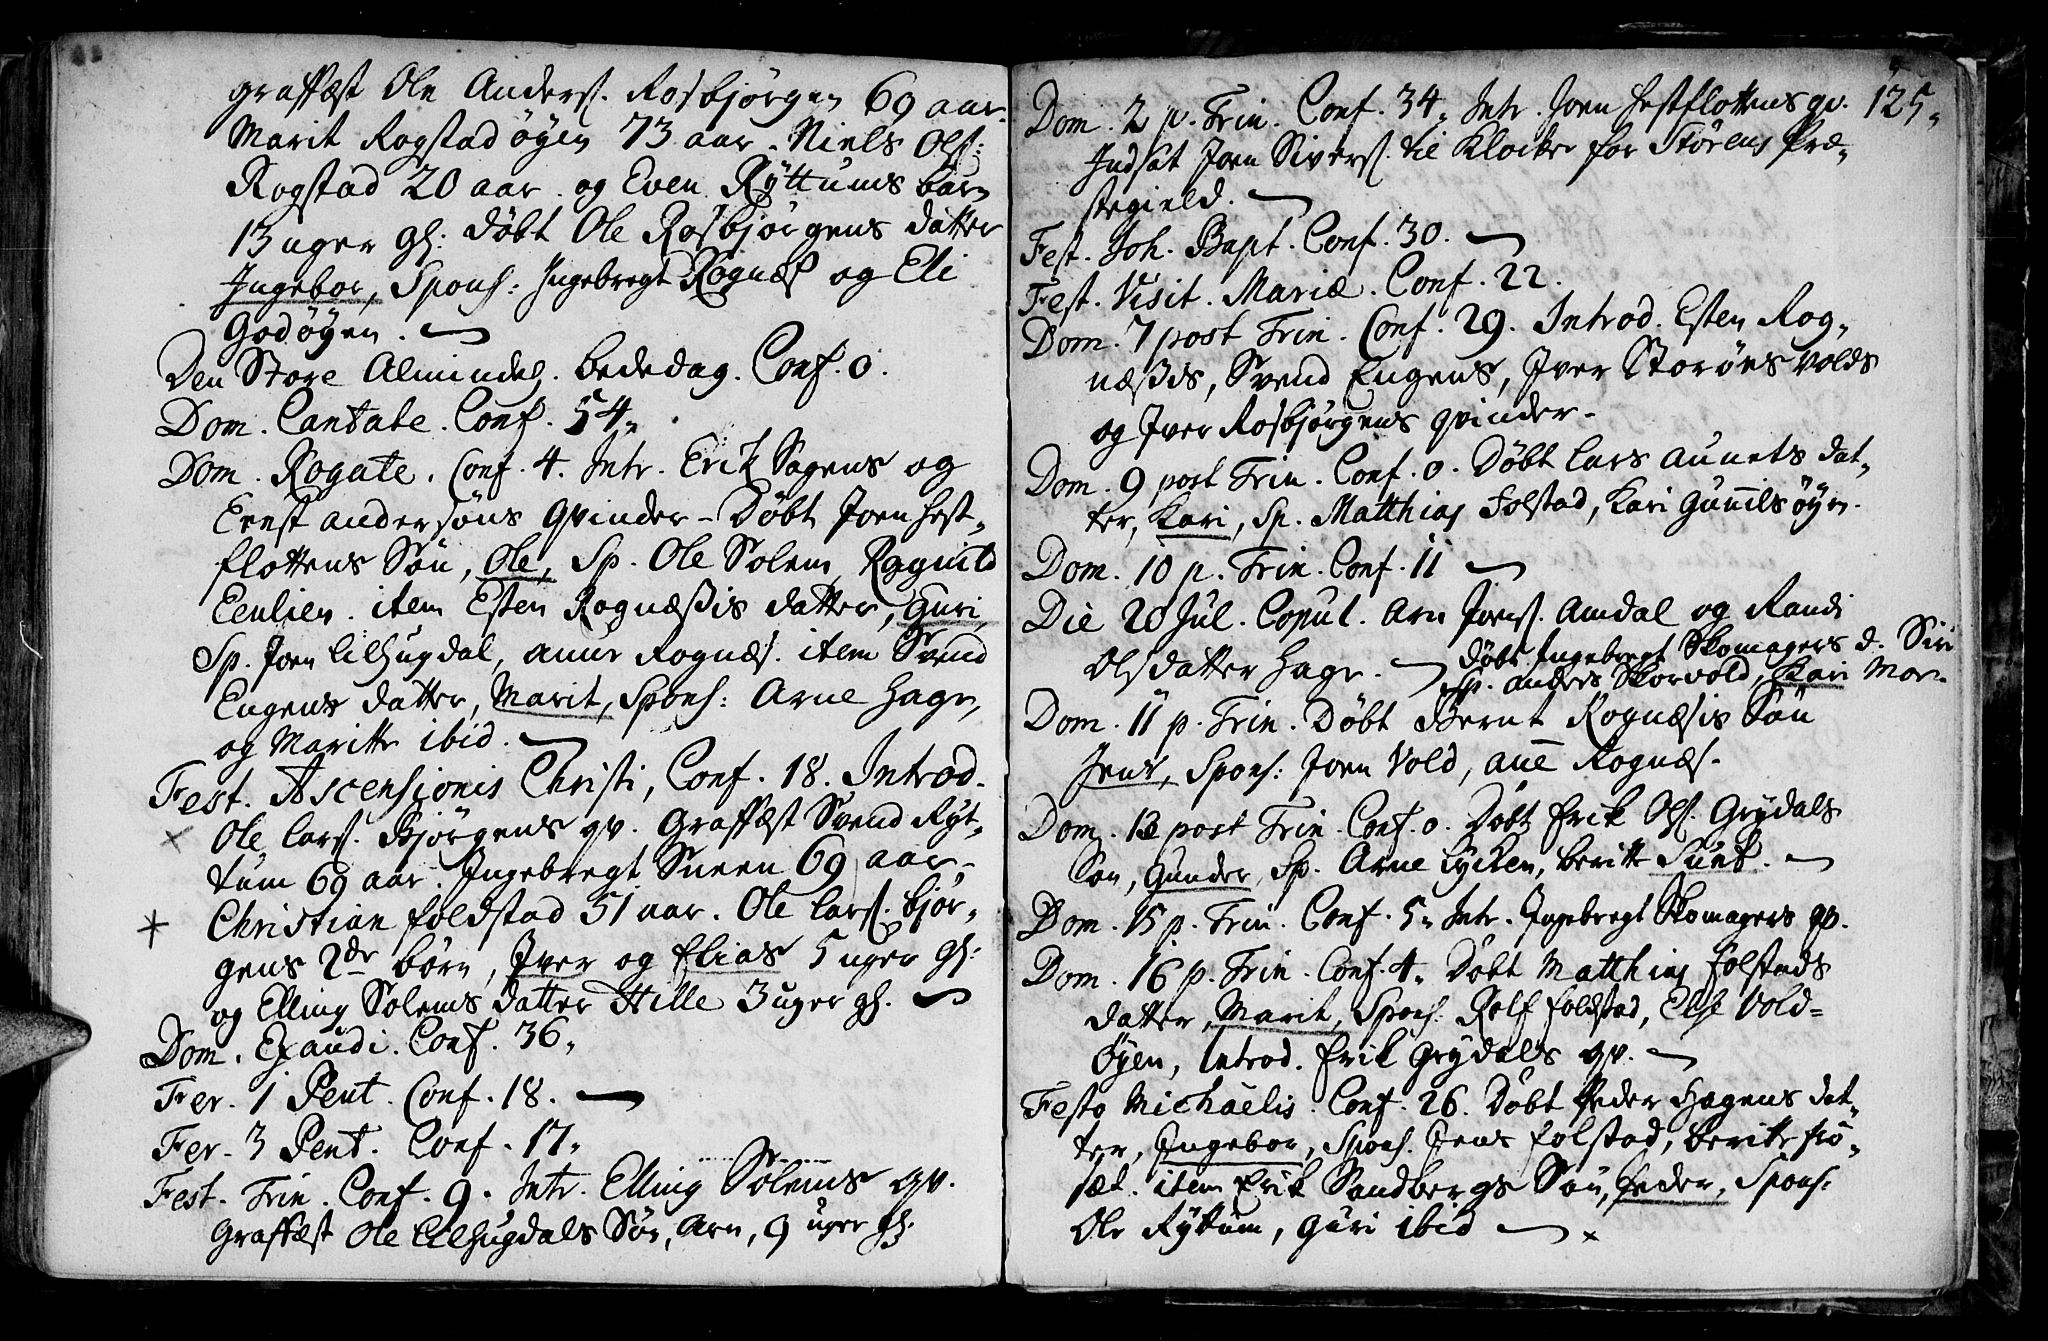 graffæst Ole Anders. Rosbjørgen 69 aar.
Marit Rogstadøyen 73 aar. Niels Ols:
Rogstad 20 aar. og Even Ryttums barn
13 uger gl: døbt Ole Rosbjørgens datter
Ingebor, Spons: Ingebregt Rognæs og Eli
Godøyen.
Den Store Almindel. bededag. Conf. 0.
Dom. Cantate. Conf. 54.
Dom. Rogate. Conf. 4. Intr. Erik Sogens og
Ernst andersøns qvinder - Døbt Joen hest-
flottens Søn, Ole, Sp. Ole Solem, Ragnild
Eenlien. item Esten Rognæssis datter, Guri,
Sp. Joen Lilhugdal, anne Rognæs. item Svend
Engens datter, Marit, Spons: Arne Hage,
og Maritte ibid.
Fest. Ascensionis Christi, Conf. 18. Introd.
Ole Lars. Bjørgens qv. Graffæst Svend Ryt-
tum 69 aar. Ingebregt Sneen 69 aar -
Christian foldstad 51 aar. Ole Lars. bjør-
gens 2de børn, Iver og Elias 5 uger gl:
og Elling Solems datter Kille 3 uger gl.
Dom. Exaudi. Conf. 36.
Fer. 1 Pent. Conf. 18.
Fer. 3 Pent. Conf. 17.
Fest. Trin. Conf. 9. Intr. Elling Solems qv.
Graffæst Ole Lilhugdals Søn, Arn, 9 uger gl:
125.
Dom. 2 p. Trin. Conf. 34. Intr. Joen hestflottens qv.
Indsat Joen Sivers. til Klocker for Størens Præ-
stegield.
Fest. Joh. Bapt. Conf. 30.
Fest. Visit. Mariæ. Conf. 22.
Dom. 7 post Trin. Conf. 29. Introd. Esten Rog-
næssis, Svend Engens, Iver Storøens volds
og Iver Rosbjørgens qvinder -
Dom. 9 post Trin. Conf. 0. Døbt Lars aunets dat-
ter, Kari, Sp. Matthias Folstad, Kari Gunnilsøyen.
Dom. 10 p. Trin. Conf. 11
Die 20 Jul. Copul. Arn Joens. Amdal og Randi
Olsdatter Hage.
døbt Ingebregt Skomagers d. Siri
Sp. anders Skorvold, Kari Mor-
Dom. 11 p. Trin. Døbt Bernt Rognæsis Søn
Jens, Spons: Joen Vold, ane Rognæs.
Dom. 13 post Trin. Conf. 0. Døbt Erik Ols. Grydals
Søn, Gunder, Sp. Arne Lycken, beritte Sunt.
Dom. 15 p. Trin. Conf. 5. Intr. Ingebregt Skomagers qv.
Dom. 16 p. Trin. Conf. 4. Døbt Matthias folstads
datter, Marit, Spons: Rolf foldstad, Else Vold-
øyen, Introd. Erik Grydals qv.
Festo Michaëlis. Conf. 26. Døbt Peder Hagens dat-
ter, Ingebor, Spons. Jens folstad, beritte frø-
sæt. item Erik Sandbergs Søn, Peder, Spons:
Ole Ryttum, Guri ibid